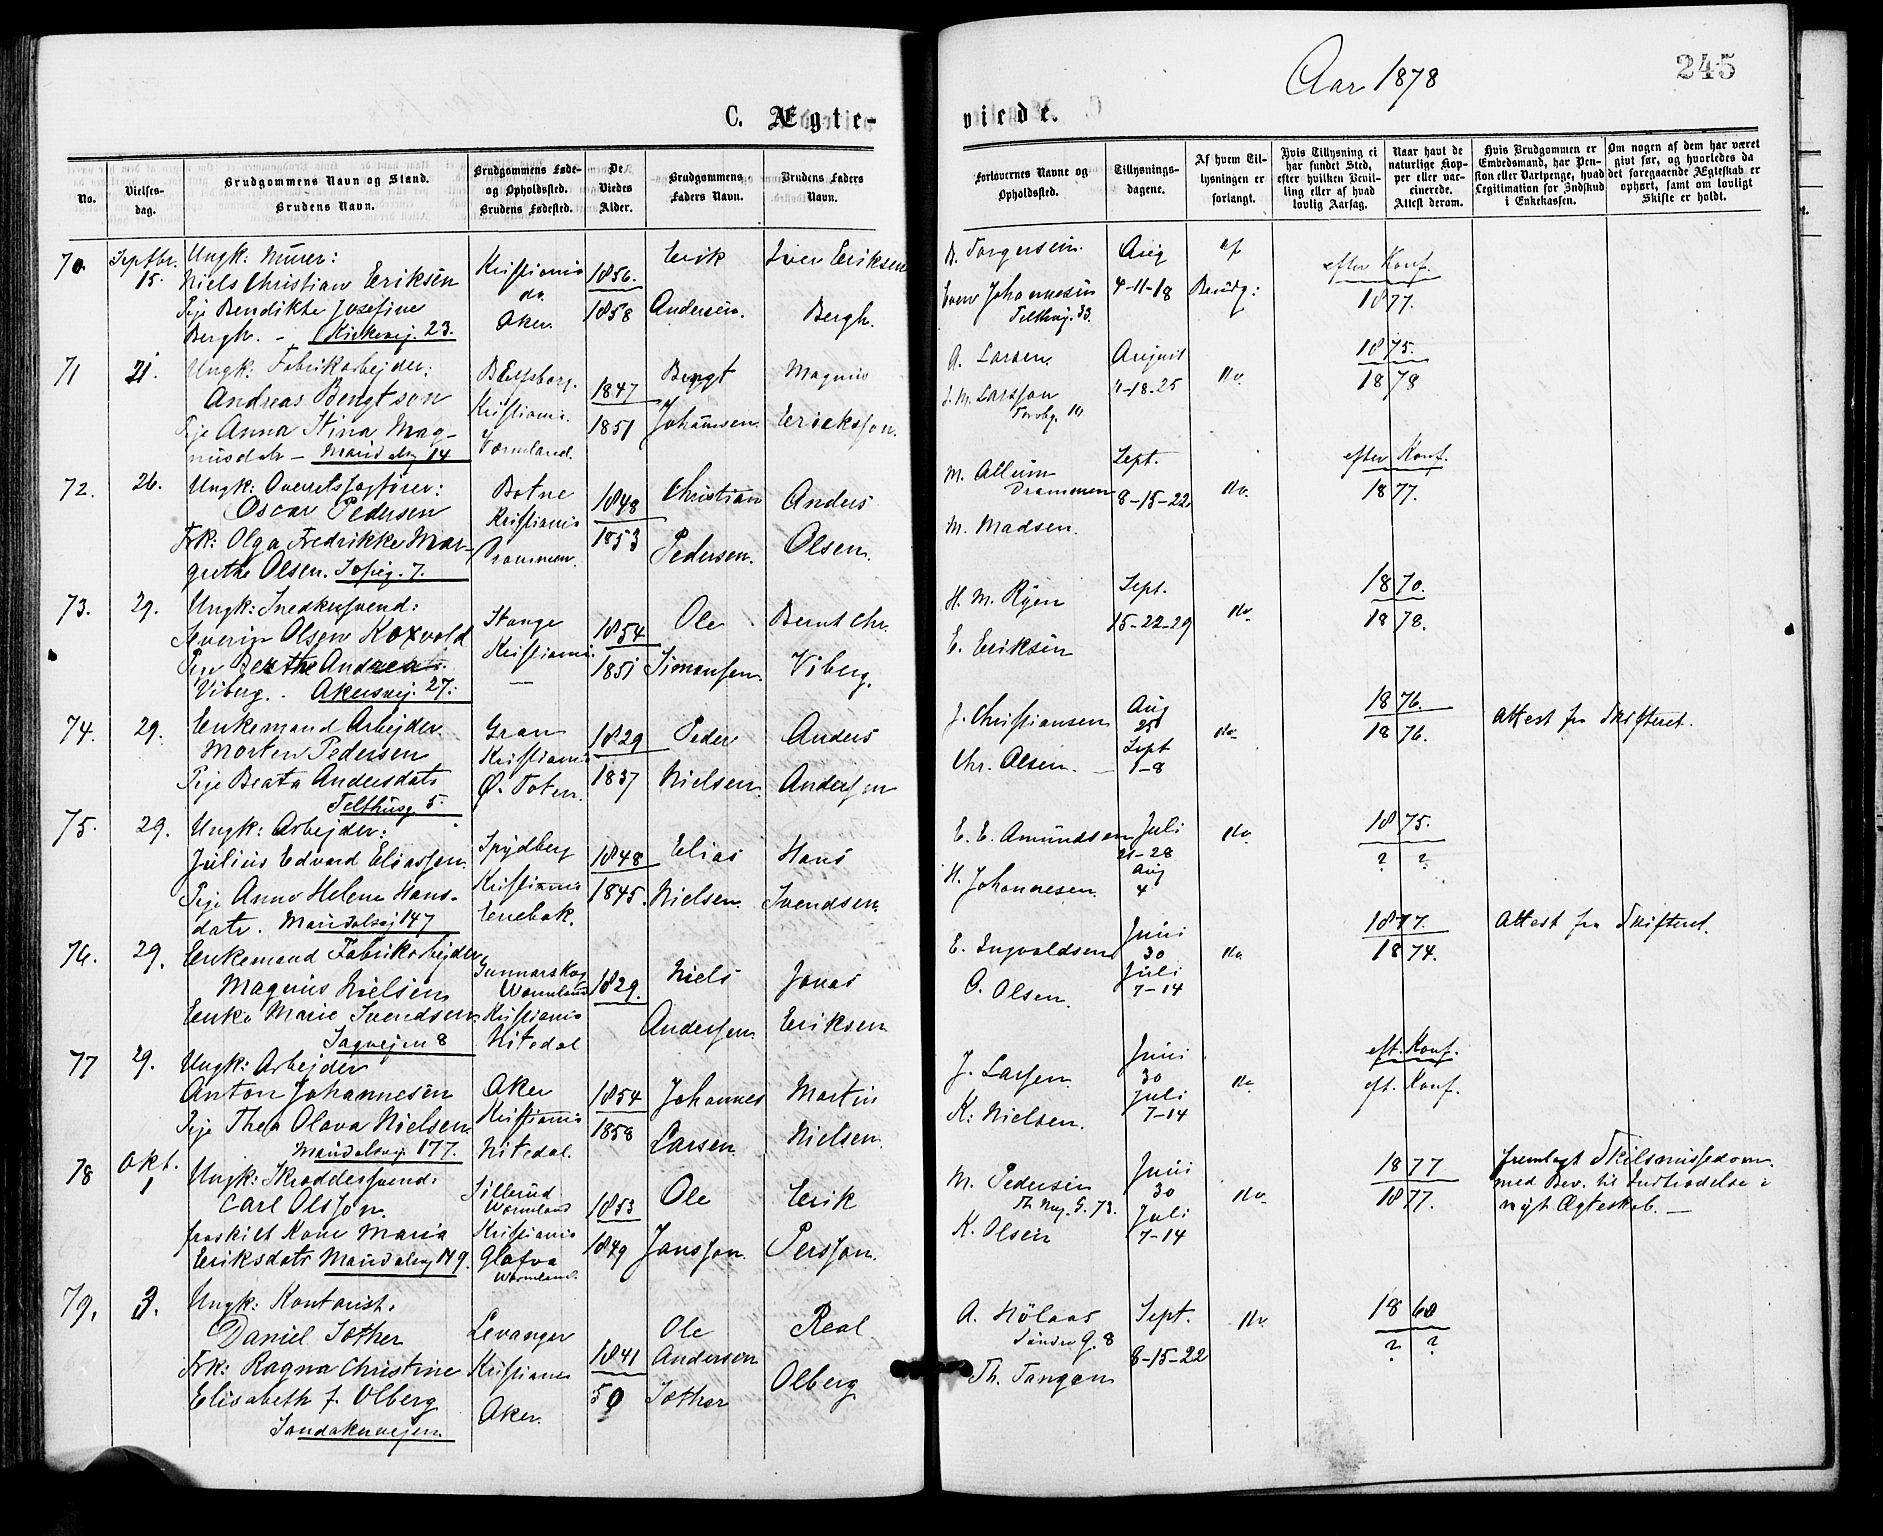 Aar 1878
245
C. Ægte-
viede.
No.
Vielses-
dag.
Brudgommens Navn og Stand.
Brudens Navn.
Brudgommens Føde-
og Opholdssted.
Brudens Fødested.
De
Viedes
Alder.
Brudgommens
Faders Navn.
Brudens Faders
Navn.
Forlovernes Navne og
Opholdssted.
Tillysnings-
dagene.
Af hvem Til-
lysningen er
forlangt.
Hvis Tillysning ei
har fundet Sted,
efter hvilken Bevil-
ling eller af hvad
lovlig Aarsag.
Naar havt de
naturlige Kop-
per eller vac-
cinerede.
Attest derom.
Hvis Brudgommen er
Embedsmand, har Pen-
sion eller Vartpenge, hvad
Legitimation for Indskud
i Enkekassen.
Om nogen af dem har været
givt før, og hvorledes da
det foregaaende Ægteskab er
ophørt, samt om lovligt
Skifte er holdt.
70 Septbr. 15. Ungk: Murer:
Niels Christian Eriksen
Pige Bendikte Josefine
Bergh. – Kirkevej. 23.
Kristiania
do.
Aker
1856.
1858
Erik
Andersen.
Iver Eriksen
Bergh.
B. Torgersen.
Even Johannesen
Telthusg. 33.
Aug
4-11-18
af
Brudg:
efter Konf.
1877.
71 21. Ungk: Fabrikarbejder:
Andreas Bengtson
Pige Anna Stina Mag-
nusdatr – Maridalsvej 14
B Elfsborg.
Kristiania.
Vermland.
1847
1851
Bengt
Johannsen
Magnus
Erickson.
A. Larsen.
J. M. Larsson
Torvbg. 10
August
4-18-25
do.
1875.
1878
72. 26. Ungk: Overretssagfører:
Oscar Pedersen
Frk: Olga Fredrikke Mar-
grethe Olsen. Sofieg. 7.
Botne
Kristiania
Drammen.
1848
1853
Christian
Pedersen.
Anders
Olsen.
M. Allum
Drammen
M. Madsen.
Sept.
8-15-22
do.
efter Konf.
1877.
73. 29. Ungk: Snedkersvend:
Severin Olsen Koxvold
Pige Berthe Andrea
Viberg. Akersvej. 27.
Stange
Kristiania
—
1854
1851
Ole
Simensen
Bernt Chr.
Viberg.
H. M. Ryen
E. Eriksen
Sept.
15-22-29
do.
1870.
1878.
74. 29. Enkemand Arbejder
Morten Pedersen
Pige Beata Andersdatr
Telthusg. 5.
Gran
Kristiania
Ø. Toten
1829
1837
Peder
Nielsen
Anders
Andersen
J. Christiansen
Chr. Olsen. –
Aug
25
Sept
1-8
do.
1876.
1876.
Attest fra Skifteret.
75. 29. Ungk: Arbejder:
Julius Edvard Eliassen.
Pige Anne Helene Hans-
datr. Maridalsvej 147
Spydberg
Kristiania
Enebak.
1848
1845.
Elias
Nielsen.
Hans
Svendsen.
E. E. Amundsen
H. Johannesen.
Juli
21-28
Aug
4
do.
1875.
? ?
76. 29. Enkemand Fabrikarbejder
Magnus Nielsen
Enke Marie Svendsen
Sagvejen 8
Gunnarskog
Wermland
Kristiania
Nitedal
1829.
Niels
Andersen
Jonas
Eriksen
E. Ingvaldsen
O. Olsen.
Juni
30
Juli
7-14
do.
1877.
1874.
Attest fra Skifteret.
77 29. Ungk: Arbejder
Anton Johannesen
Pige Thea Olava Nielsen
Maridalsvej 177.
Aker
Kristiania
Nitedal.
1854
1858
Johannes
Larsen
Martin
Nielsen.
J. Larsen.
K. Nielsen.
Juni
30
Juli
7-14
do
eft. Konf.
eft. Konf.
78 Okt. 1 Ungk: Skræddersvend:
Carl Olsson.
fraskilt Kone Maria
Eriksdatr Maridalsvej 149.
Sillerud
Wermland
Kristiania
Glafva
Wermland.
1853
1849
Ole
Jansson.
Erik
Persson.
M. Pedersen
Th. Mey. G. 73.
K. Olsen
Juni
30
Juli
7-14
do.
1877
1877.
fremlagt Skilsmissedom.
med Bev. til Indtrædelse i
nyt Ægteskab. –
79. 3. Ungk: Kontorist.
Daniel Sother
Frk: Ragna Christine
Elisabeth f. Olberg
Sandakervejen.
Levanger
Kristiania
Aker.
1841
50
Ole
Andersen
Sother
Real
Olberg
A. Hölaas
Tønder G. 8
Th. Tangen
Sept.
8-15-22
do.
1860
? ?